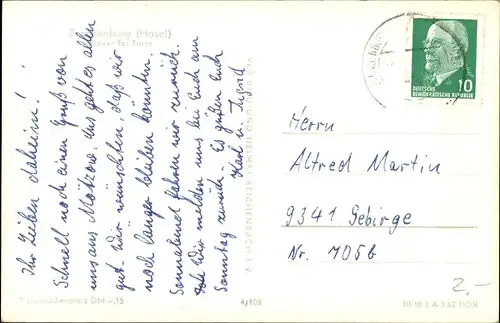 Brandenburg (Havel)
Plauer Tor Turm
Ihr Lieben daheim!
Schnell noch einen Gruß von
uns aus Mötzow. Uns geht es allen
gut. Wir wünschten, daß wir
noch länger bleiben könnten.
Sonnabend fahren wir zurück.
Wir melden uns bei Euch am
Sonntag zurück. Es grüßen Euch
Karl u.
DEUTSCHE
DEMOKRATISCHE REPUBLIK
10
Herrn
Alfred Martin
9341 Gebirge
Nr. 705b
2,-
Verbraucherpreis DM -,15
4/109
III-18-8 A 3 62 DDR